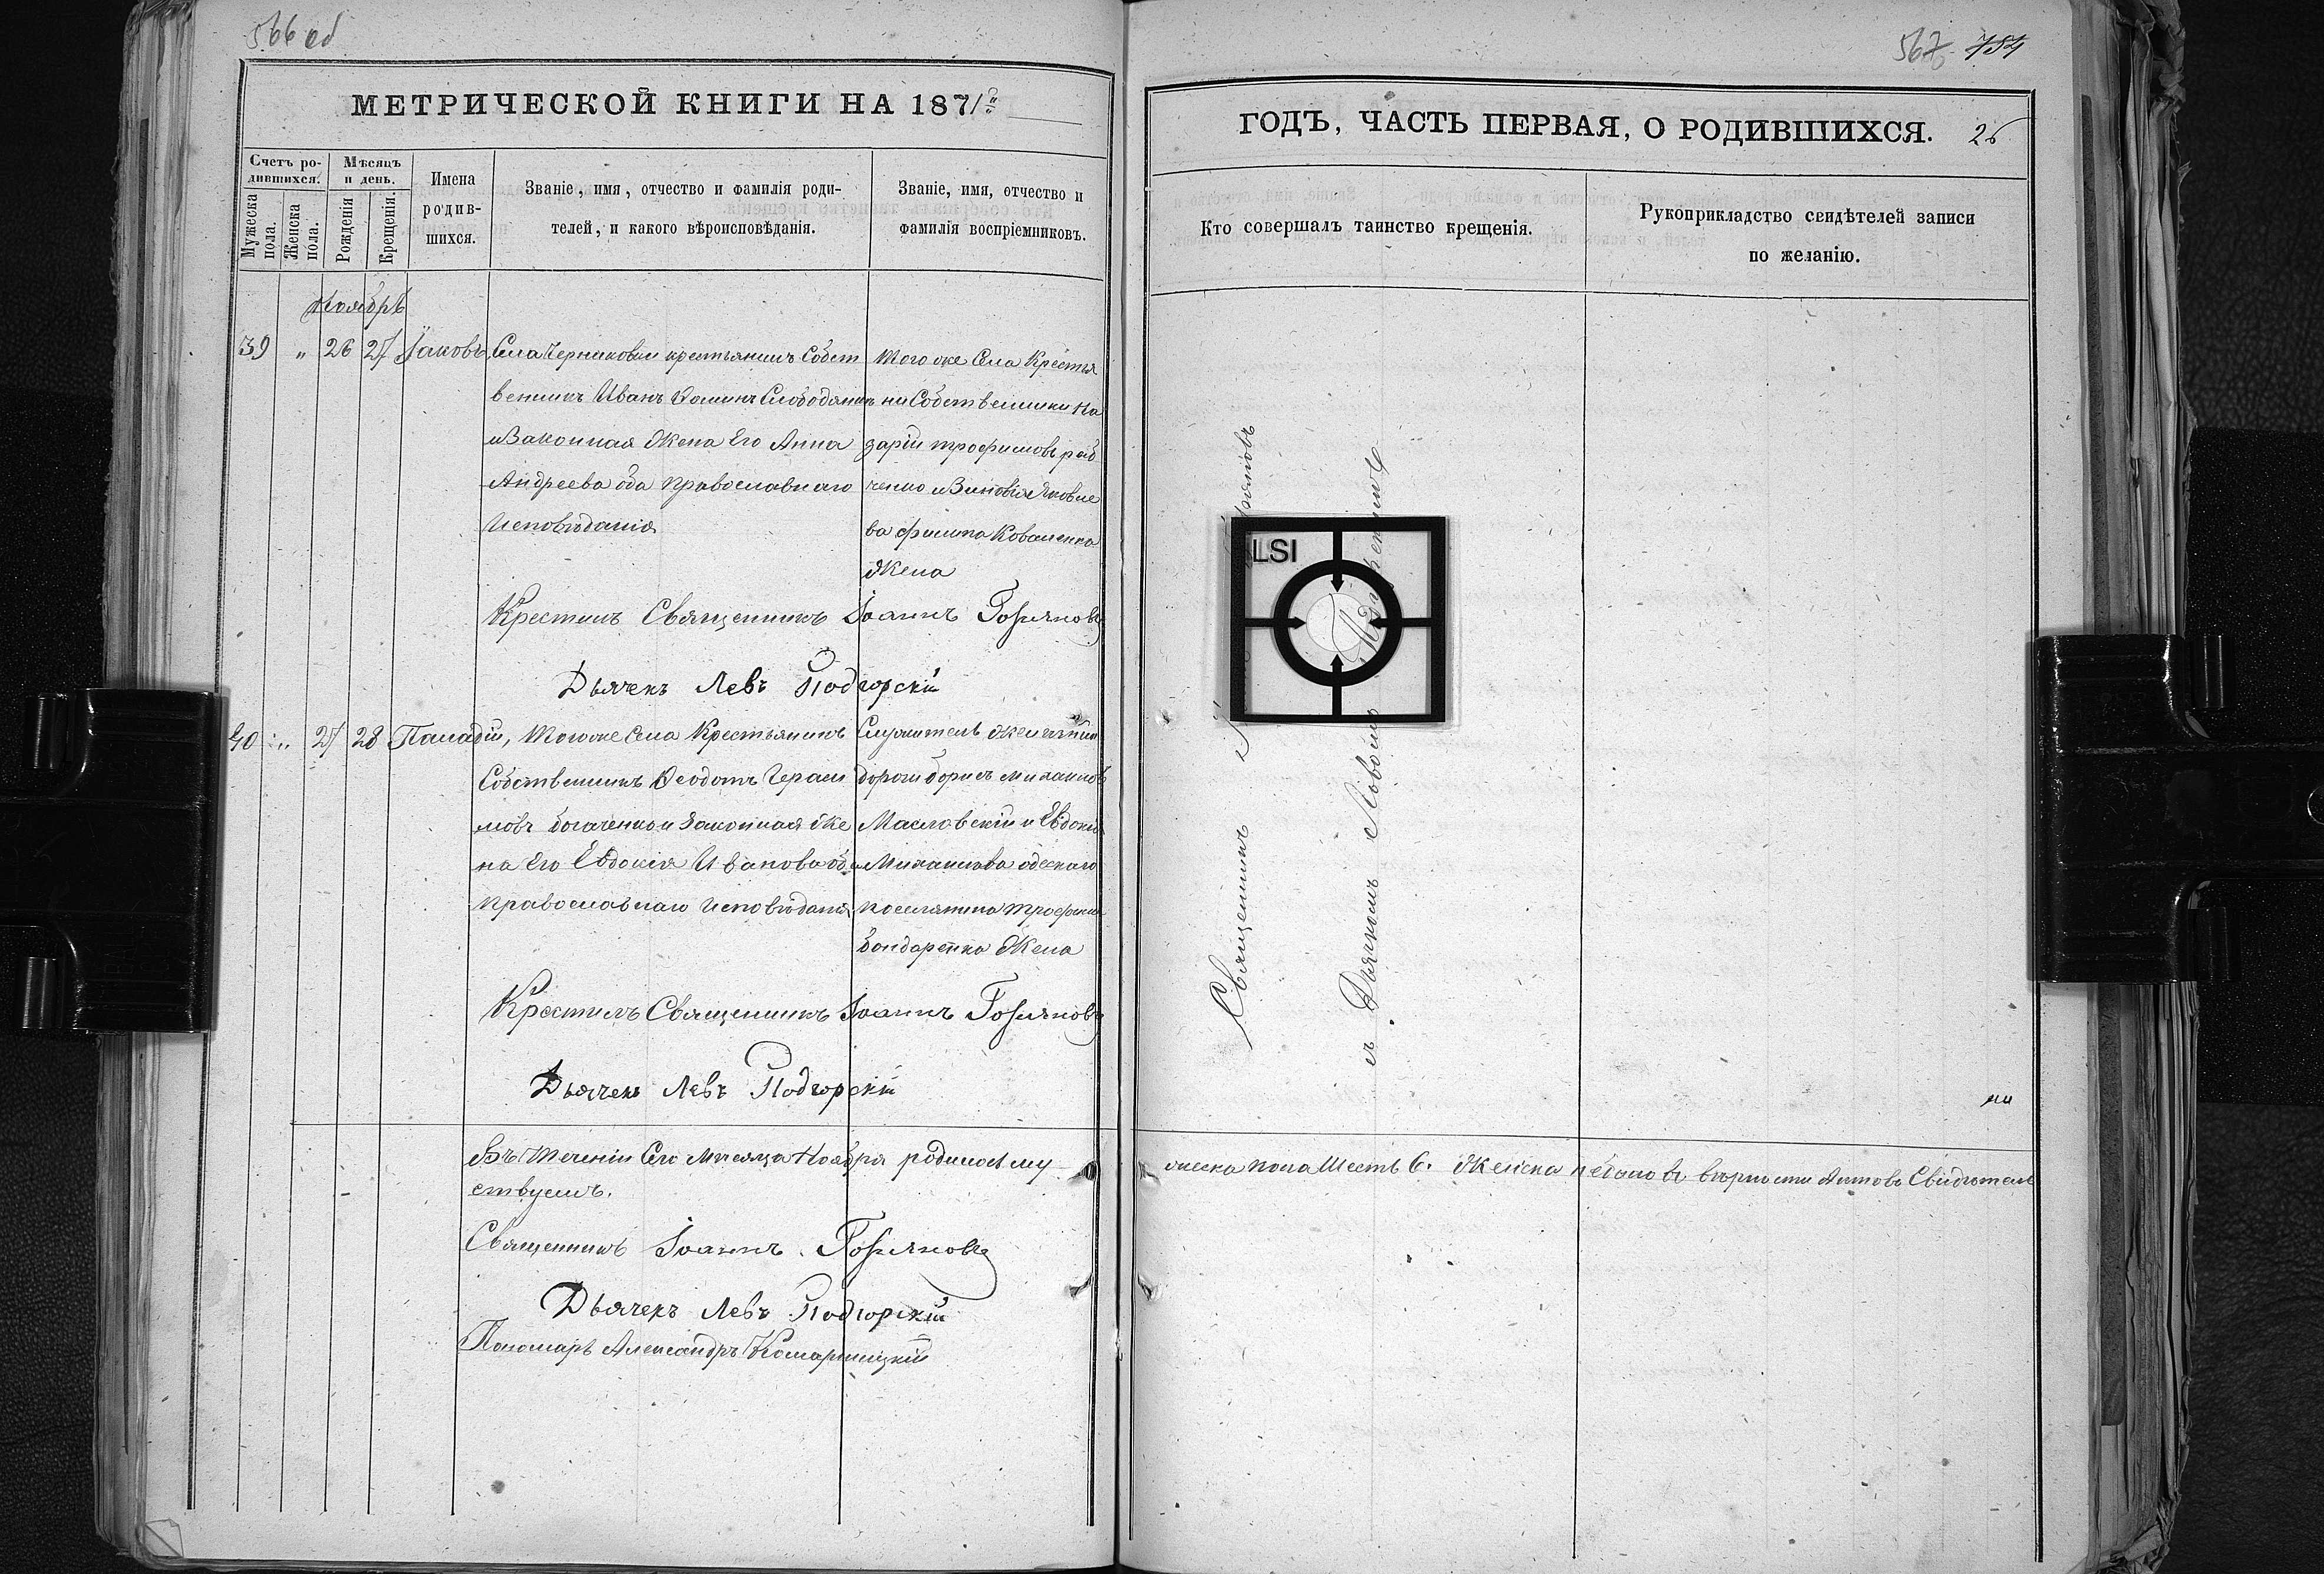 566 об
МЕТРИЧЕСКОЙ КНИГИ НА 1871й
Счетъ ро-
дившихся.
Мѣсяцъ
и день.
Мужеска пола.
Женска пола.
Рожденія
Крещенія.
Имена
родив-
шихся.
Званіе, имя, отчество и фамилія роди-
телей, и какого вѣроисповѣданія.
Званіе, имя, отчество и
фамилія воспріемниковъ.
Ноябрь
39 " 26 27 Іаковъ
Села крестьянинъ Собст
венникъ Иванъ Фоминъ Слободяникъ
и Законная Жена Его Анна
Андреева оба Православнаго
Исповѣданія
Того же Села Крестья
ни Собственники На
зарій трофимовъ
ченко и Зиновія Яковле
ва филипа Коваленка
Жена
Крестилъ Священникъ Іоаннъ
Дьячекъ Левъ Подгорскій
40 " 27 28 Паладій,
Тогоже Села Крестьянинъ
Собственникъ Феодотъ Гераси
мовъ богаченко и Законная Же
на Его Евдокія Иванова оба
Православнаго Исповѣданія
Служитель желѣзной
дороги борисъ михаиловъ
Масловскій и Евдокія
Михаилова одескаго
поселянина трофима
бондаренка Жена
Крестилъ Священникъ Іоаннъ
Дьячекъ Левъ Подгорскій
Въ Теченіи Сего Мѣсяца Ноября родилось му
ствуемъ.
Священникъ Іоаннъ
Дьячекъ Левъ Подгорскій
Пономарь Александръ Комарницкій
567 784
ГОДЪ, ЧАСТЬ ПЕРВАЯ, О РОДИВШИХСЯ. 26
Кто совершалъ таинство крещенія.
Рукоприкладство свидѣтелей записи
по желанію.
Священникъ
съ Дьячкомъ Львомъ
LSI
жеска пола Шесть 6. Женска небыло Въ вѣрности Актовъ Свидѣтель